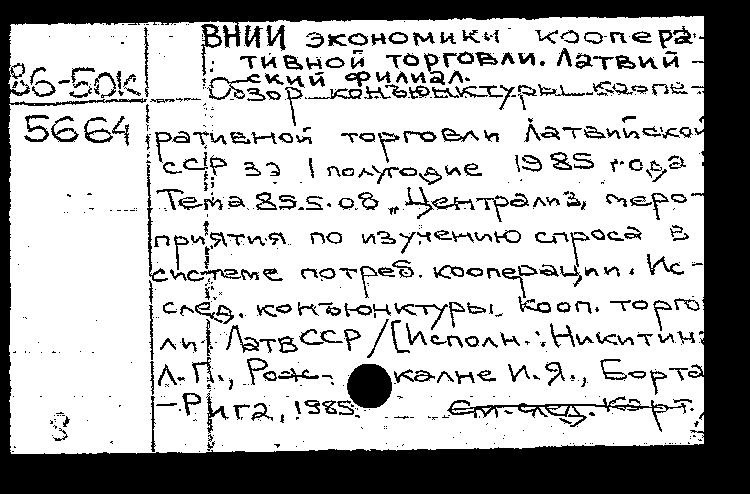 ВНИИ экономики коопера-
тивной торговли. Латвий-
ский филиал.
86-50К
Обзор конъюнктуры коопе-
5664
ративной торговли Латвийской
ССР за 1 полугодие 1985 года:
Тема 85.5.08 „Централиз. меро-
приятия по изучению спроса в
системе потреб. кооперации. Ис-
след. конъюнктуры кооп. торго
ли ЛатвССР /[Исполн.: Никитина
Л.П., Рож- калне И.Я., Борта
-Рига, 1985.
См. след. карт.
8